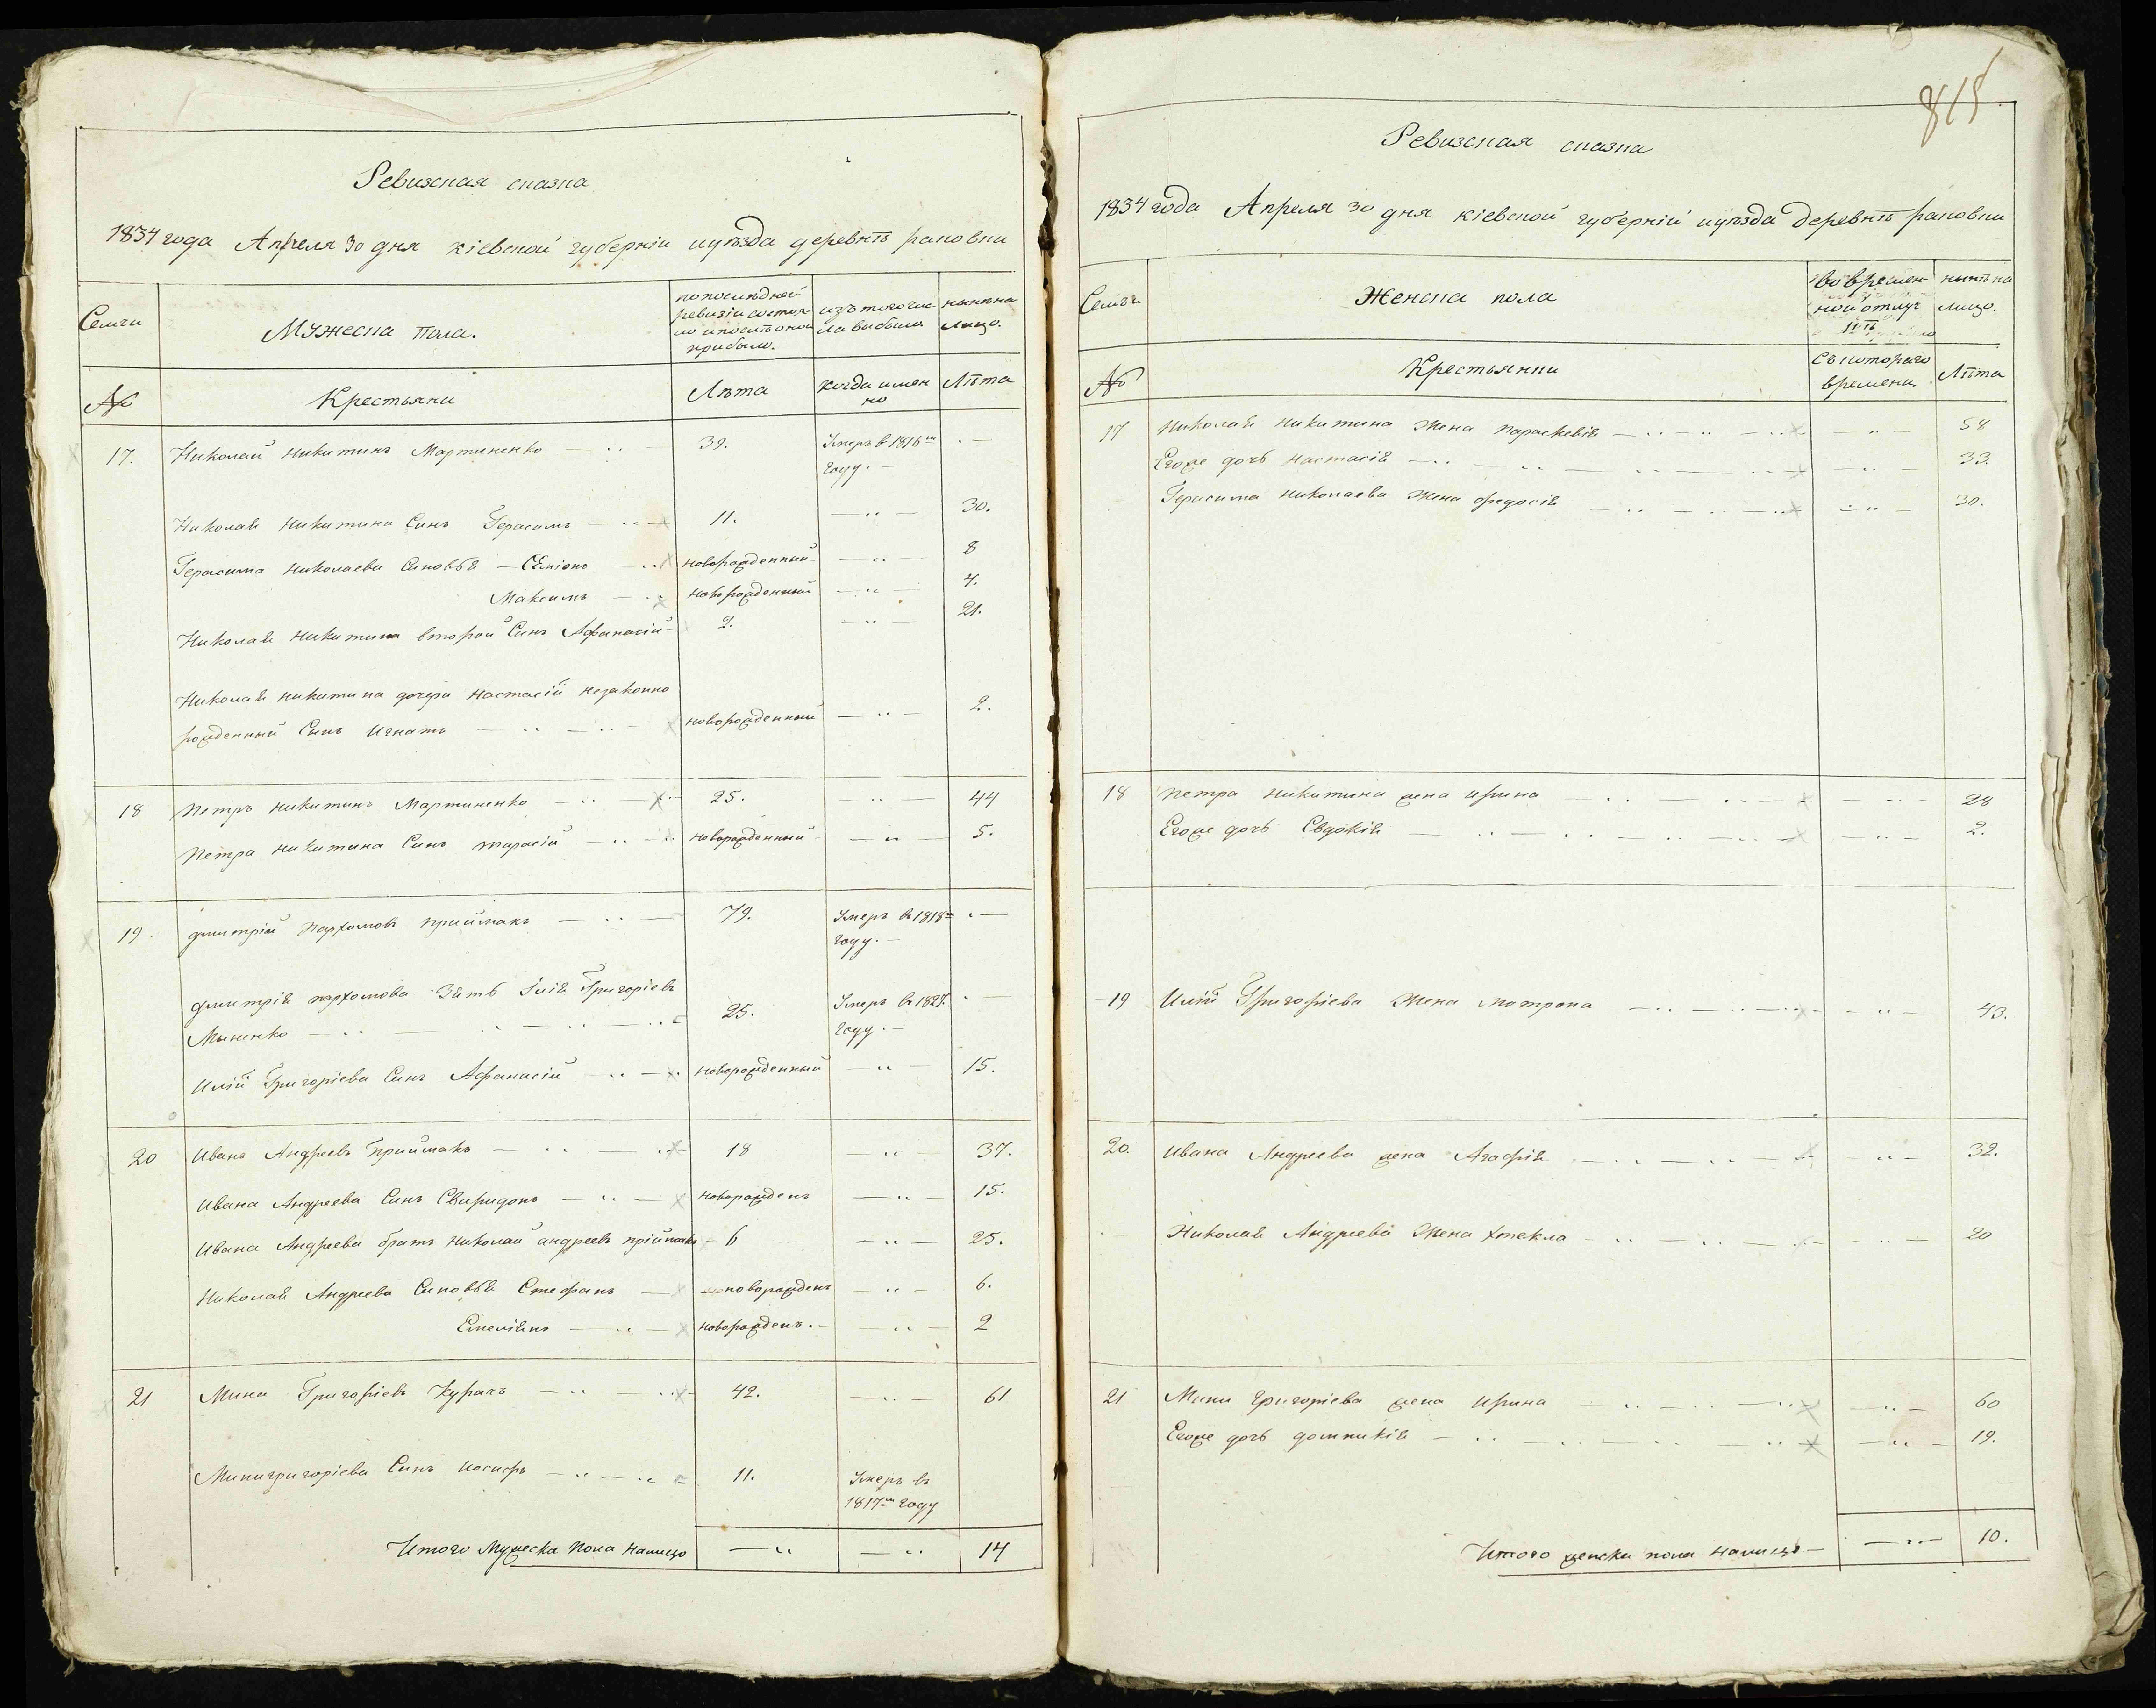 Ревизская сказка
1834 года Апреля 30 дня кіевской губерніи иуѣзда деревнѣ раковки
Семьи
Мужеска пола.
по последней
ревизіи состоя-
ло и после оной
прибыло.
изъ того чис-
ла выбыло
нынѣ на
лицо.
№
Крестьяни
Лѣта
когда имен
но
Лѣта
17. Николай Никитинъ Мартиненко 39. Умеръ в 1816м .—
году.—
Николая Никитина Синъ Герасимъ 11. 30.
Герасима Николаева Синовья — Семіонъ новорожденный 8
Максимъ новорожденный 4.
Николая Никитина второй Синъ Афанасій 2. 21.
Николая Никитина дочери Настасіи незаконно
рожденный Сынъ Игнатъ новорожденный 2.
18 Петръ Никитинъ Мартиненко 25. 44
Петра Никитина Синъ тарасій новорожденный 5.
19. дмитрій Пархомовъ приймакъ 79. Умеръ в 1818м .—
году.—
дмитрія пархомова Зять Ілія Григоріевъ
Миненко 25. Умеръ в 1827. .—
году.—
Иліи Григоріева Синъ Афанасій новорожденный 15.
20 Иванъ Андреевъ приймакъ 18 37.
Ивана Андреева Синъ Свиридонъ новорожденъ 15.
Ивана Андреева братъ Николай андреевъ пріймакъ 6 25.
Николая Андреева Синовья Стефанъ новорожденъ 6.
Емеліянъ новорожденъ. 2
21 Мина Григоріевъ Курачъ 42. 61
Мини григоріева Синъ Иосифъ 11. Умеръ в
1817м году
Итого Мужеска Пола налицо 14
815
Ревизская сказка
1834 года Апреля 30 дня кіевской губерніи иуѣзда деревнѣ раковки
Семьи
Женска пола
во времен-
ной отлуч
нынѣ на
лицо.
№
Крестьянки
Съ котораго
времени
Лѣта
17 Николая Никитина Жена Параскевія 58
Егоже дочь Настасія 33.
Герасима Николаева Жена федосія 30.
18 Петра Никитина жена Ирина 28
Егоже дочь Евдокія 2.
19 Иліи Григоріева Жена Мотрона 43.
20. Ивана Андреева жена Агафія 32.
Николая Андреева Жена хтекла 20
21 Мини Григоріева жена Ирина 60
Егоже дочь домникія 19.
Итого женска пола налицо 10.